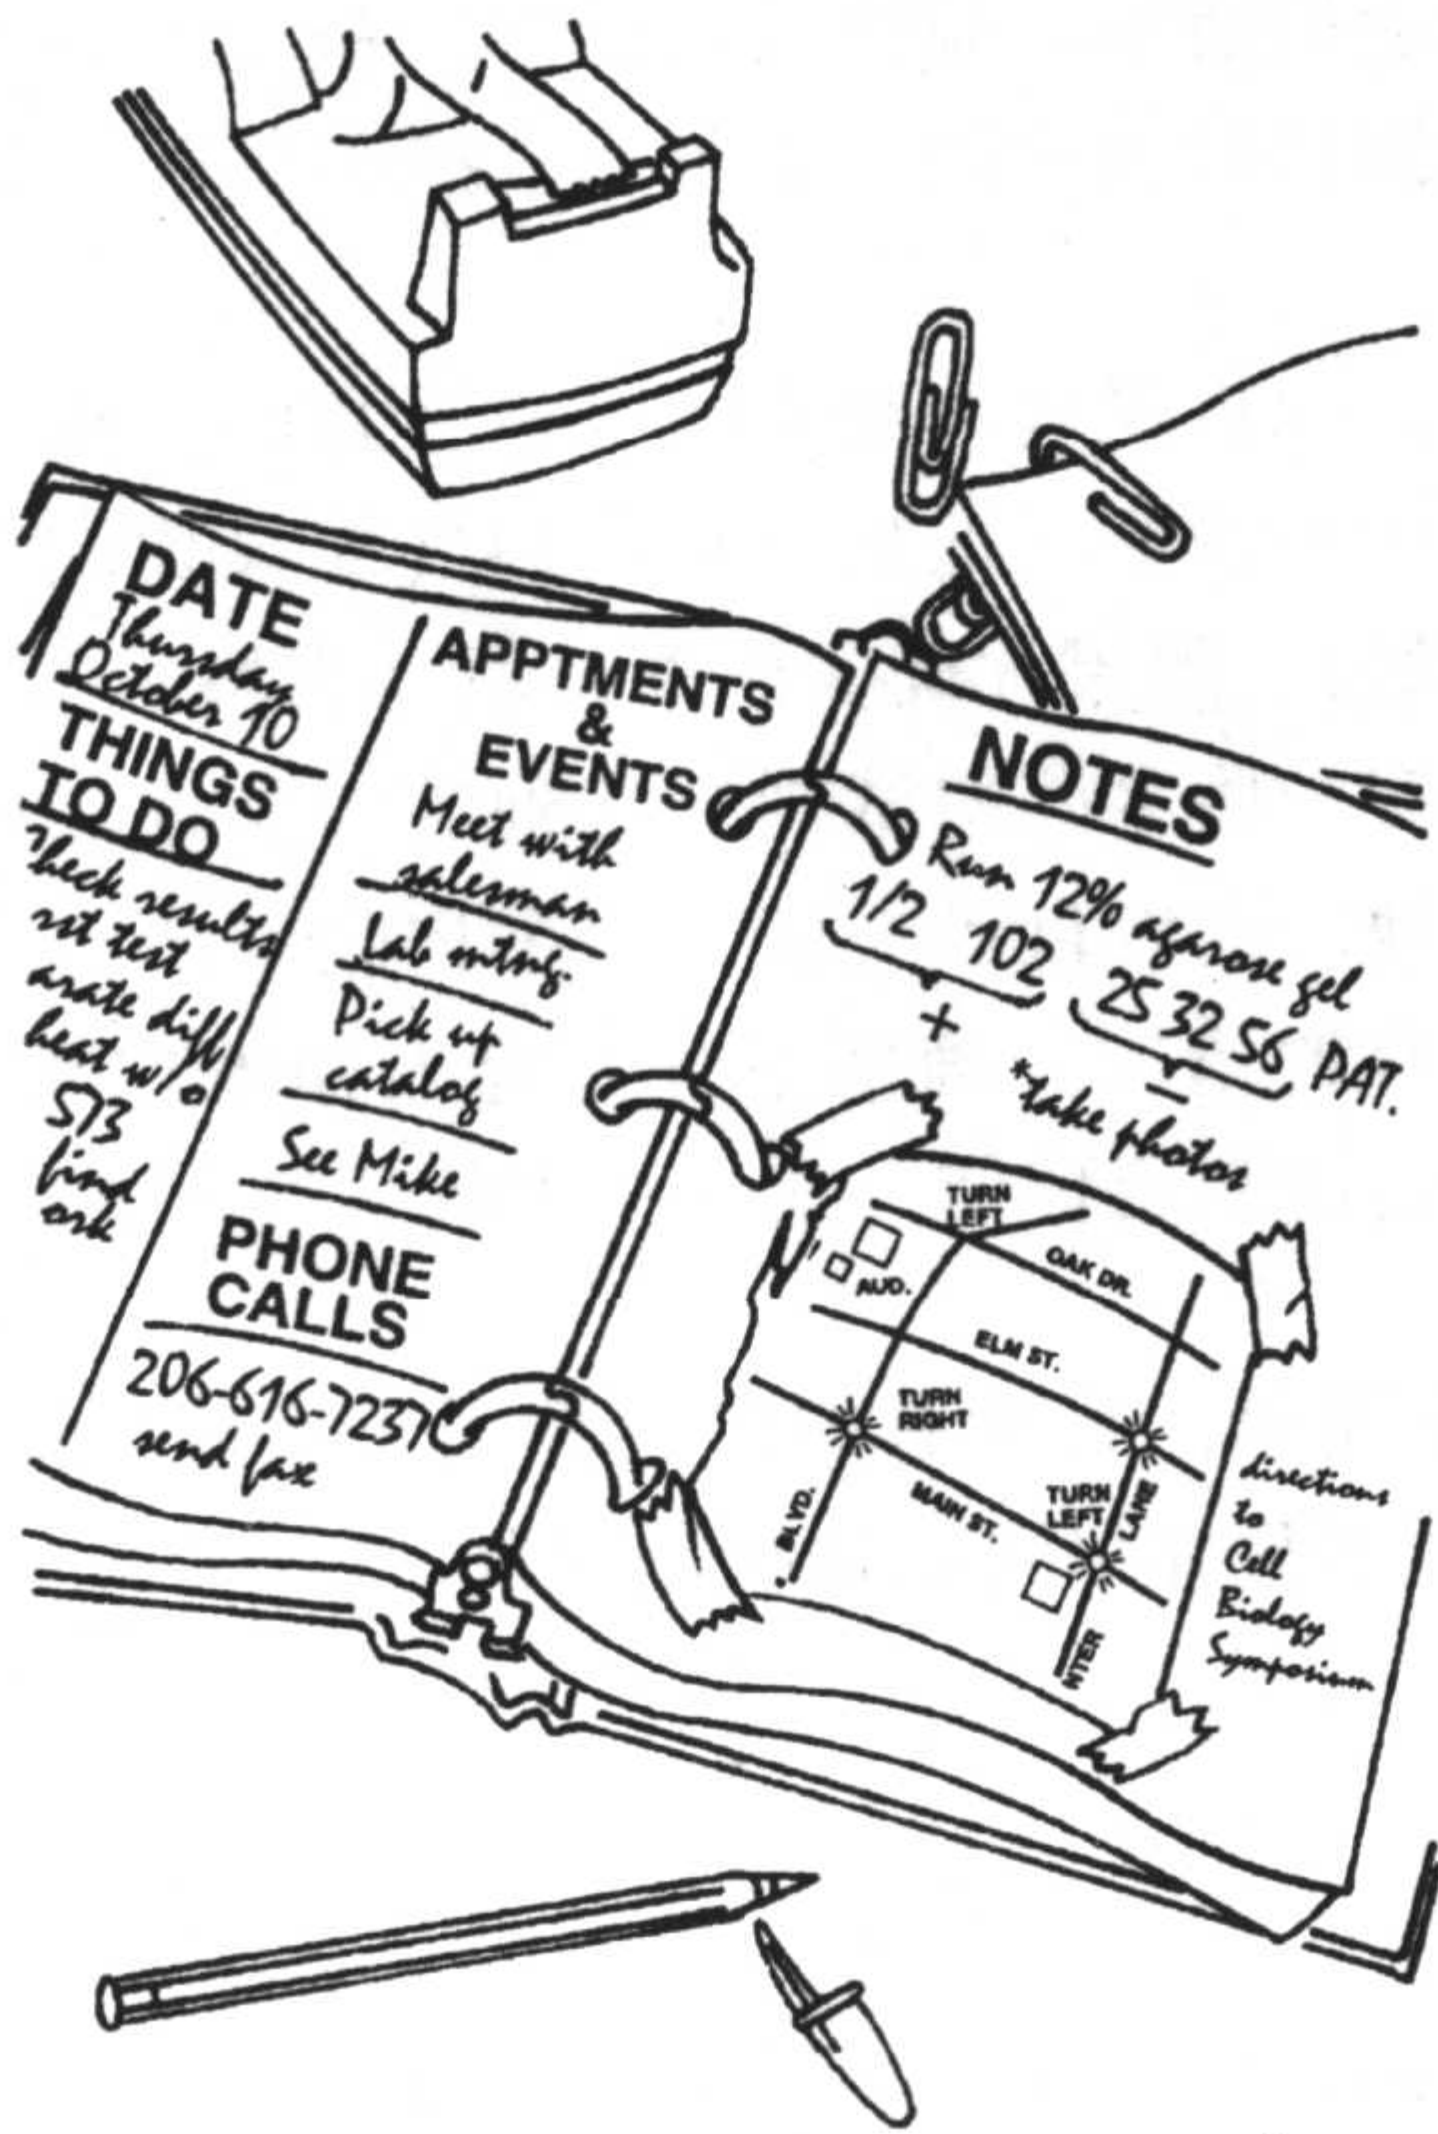 DATE
Thursday
October 10
THINGS
TO DO
heck results
st test
arate diff
heat w/o
573
find
ork
APPTMENTS
&
EVENTS
Meet with
salesman
Lab mtng.
Pick up
catalog
See Mike
PHONE
CALLS
206-616-7237
send fax
NOTES
Run 12% agarose gel
1/2 102 25 32 56 PAT.
+ –
*take photos
TURN
LEFT
OAK DR.
AUD.
ELM ST.
TURN
RIGHT
BLVD.
MAIN ST.
TURN
LEFT
LANE
NTER
directions
to
Cell
Biology
Symposium